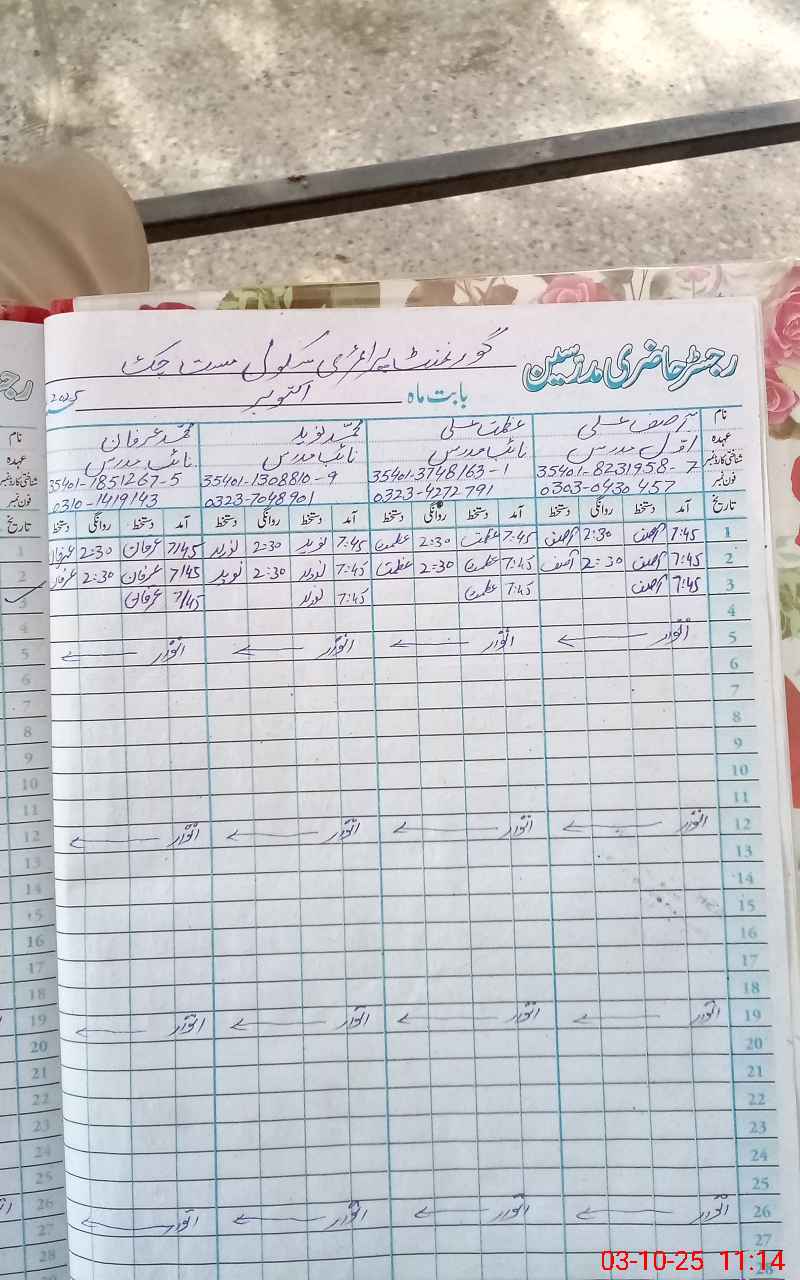 رجسٹر حاضری مدرسین گورنمنٹ پرائمری سکول مست جک
بابت ماہ اکتوبر 2025
نام آصف علی عظمت علی محمد نوید محمد عرفان
عہدہ اول مدرس نائب مدرس نائب مدرس نائب مدرس
شناختی کارڈ نمبر 35401-8231958-7 35401-3748163-1 35401-1308810-9 35401-7851267-5
فون نمبر 0303-0430457 0323-4272791 0323-7048901 0310-1419143
تاریخ آمد دستخط روانگی دستخط آمد دستخط روانگی دستخط آمد دستخط روانگی دستخط آمد دستخط روانگی دستخط
1 7:45 آصف 2:30 آصف 7:45 عظمت 2:30 عظمت 7:45 نوید 2:30 نوید 7/45 عرفان 2:30 عرفان
2 7:45 آصف 2:30 آصف 7:45 عظمت 2:30 عظمت 7:45 نوید 2:30 نوید 7/45 عرفان 2:30 عرفان
3 7:45 آصف 7:45 عظمت 7:45 نوید 7/45 عرفان
4
5 اتوار اتوار اتوار اتوار
6
7
8
9
10
11
12 اتوار اتوار اتوار اتوار
13
14
15
16
17
18
19 اتوار اتوار اتوار اتوار
20
21
22
23
24
25
26 اتوار اتوار اتوار اتوار
27
28
نام
عہدہ
شناختی کارڈ نمبر
فون نمبر
تاریخ
1
2
3
4
5
6
7
8
9
10
11
12
13
14
15
16
17
18
19
20
21
22
23
24
25
26
27
28
03-10-25 11:14